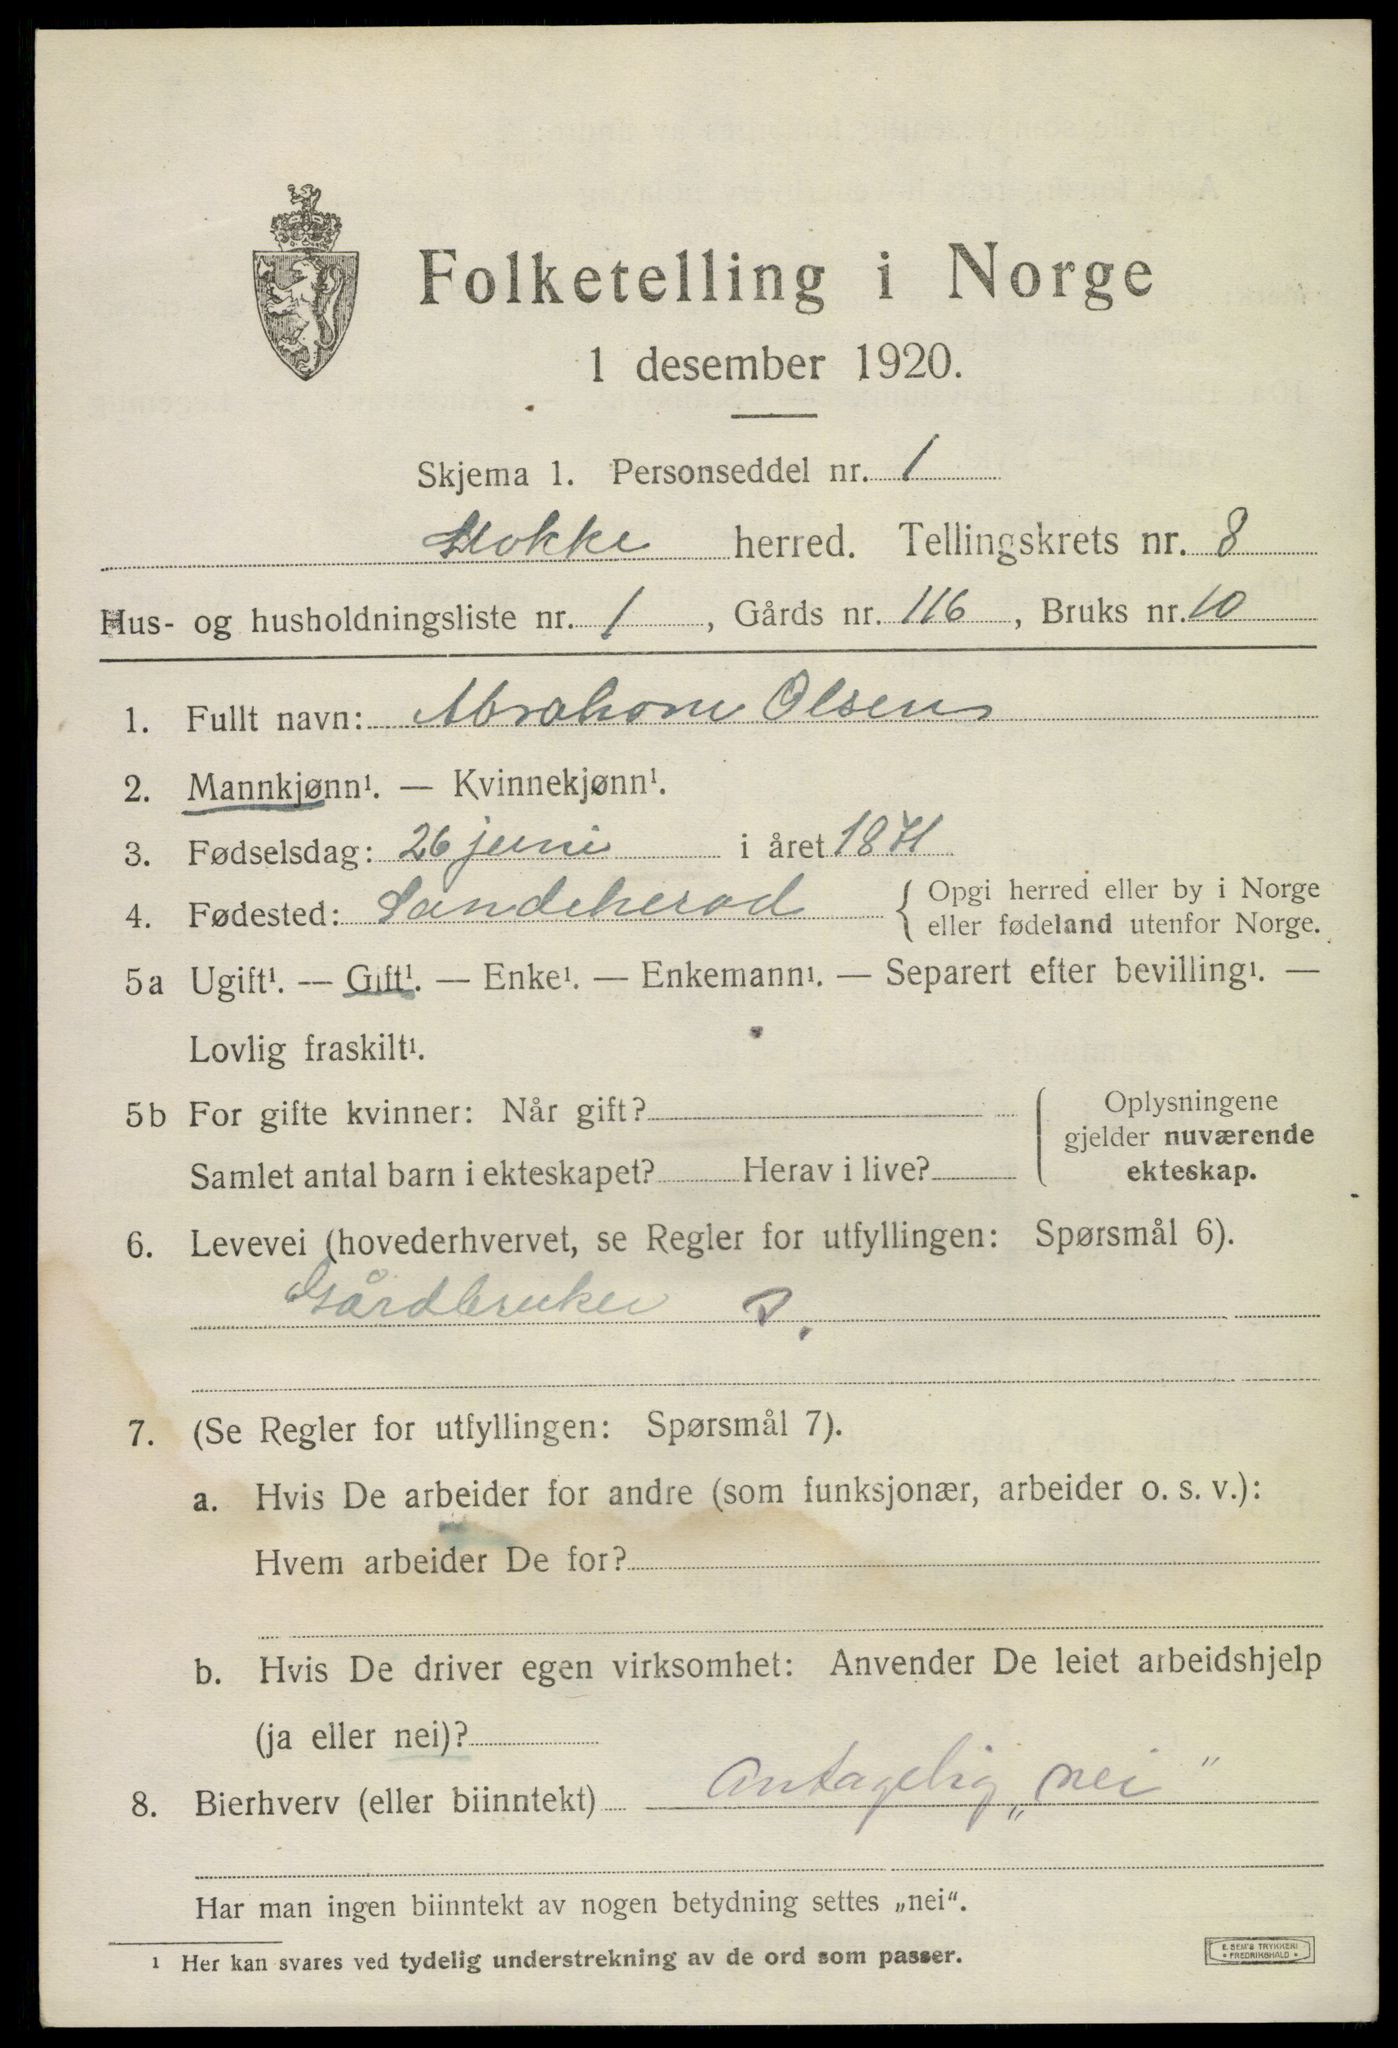 Folketelling i Norge
1 desember 1920.
Skjema 1. Personseddel nr. 1
Stokke herred. Tellingskrets nr. 8
Hus- og husholdningsliste nr. 1, Gårds nr. 116, Bruks nr. 10
1. Fullt navn: Abraham Olsen
2. Mannkjønn¹. — Kvinnekjønn¹.
3. Fødselsdag: 26 juni i året 1871
4. Fødested: Sandeherad { Opgi herred eller by i Norge
eller fødeland utenfor Norge.
5a Ugift¹. — Gift¹. — Enke¹. — Enkemann¹. — Separert efter bevilling¹. —
Lovlig fraskilt¹.
5b For gifte kvinner: Når gift?
Samlet antal barn i ekteskapet? Herav i live?
Oplysningene
gjelder nuværende
ekteskap.
6. Levevei (hovederhvervet, se Regler for utfyllingen: Spørsmål 6).
Gårdbruker
7. (Se Regler for utfyllingen: Spørsmål 7).
a. Hvis De arbeider for andre (som funksjonær, arbeider o. s. v.):
Hvem arbeider De for?
b. Hvis De driver egen virksomhet: Anvender De leiet arbeidshjelp
(ja eller nei)?
8. Bierhverv (eller biinntekt) Antagelig „nei"
Har man ingen biinntekt av nogen betydning settes „nei".
¹ Her kan svares ved tydelig understrekning av de ord som passer.
E. SEM'S TRYKKERI
• FREDRIKSHALD •